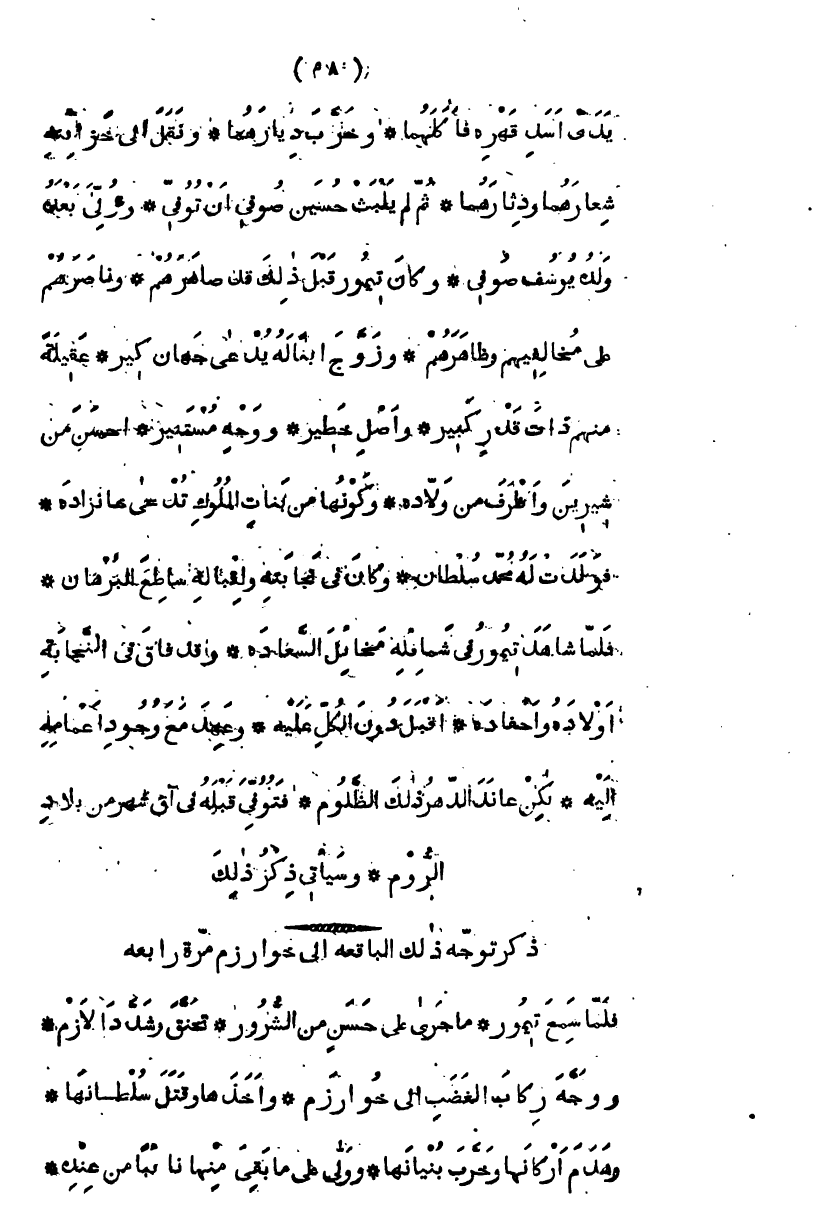 (٣٨)
يَدَيْ اَسَدِ قَهْرِهِ فَاَكَلَهُما * وخَرَّبَ دِيارَهُما * ونَقَلَ الى خَزائِنِهِ
شِعارَهُما ودِثارَهُما * ثُمَّ لم يَلْبَثْ حُسَين صُوفي اَنْ تُوفّيَ * ووُلِّيَ بَعْدَهُ
وَلَدُهُ يُوسُف صُوفي * وكانَ تيمُورُ قَبْلَ ذٰلِكَ قد صاهَرَهُمْ * وناصَرَهُمْ
على مُخالِفِيهم وظاهَرَهُمْ * وزَوَّجَ ابْنًا لَهُ يُدْعٰى جَهان كير * عَقِيلَةً
منهم ذاتَ قَدْرٍ كَبِير * واَصْلٍ خَطِير * ووَجْهٍ مُسْتَنِير * احسَنَ من
شِيرِينَ واَظْرَفَ من وَلّادَه * وكَوْنُها من بَناتِ المُلُوكِ تُدْعٰى خانزادَه *
فوَلَدَتْ لَهُ مُحَمَّد سُلْطان * وكانَ في نَجابَتِهِ واِقْبالِهِ ساطِعَ البُرْهان *
فَلَمّا شاهَدَ تيمُورُ في شَمائِلِهِ مَخائِلَ السَّعادَه * وقد فاقَ في النَّجابَةِ
اَوْلادَهُ واَحْفادَه * اَقْبَلَ دُونَ الكُلِّ عَلَيْه * وعَهِدَ مَعَ وُجُودِ اَعْمامِهِ
اِلَيْه * لكِنْ عانَدَ الدَّهرُ ذٰلكَ الظَّلُوم * فَتُوُفِّيَ قَبْلَهُ في آق شهر من بلادِ
الرُّوْم * وسَيَأْتي ذِكْرُ ذٰلِكَ
ذكر توجّه ذٰلك الباقعه الى خوارزم مرّة رابعه
فَلَمّا سَمِعَ تيمُور * ما جَرىٰ على حَسَنٍ من الشُّرُور * تَحَنَّقَ وشَدَّدَ الاَزْم *
ووَجَّهَ رِكابَ الغَضَبِ الى خُوارَزم * واَخَذَها وقَتَلَ سُلْطانَها *
وهَدَمَ اَرْكانَها وخَرَّبَ بُنْيانَها * ووَلّٰى على ما بَقِيَ مِنْها نائبًا من عِنْدِه *